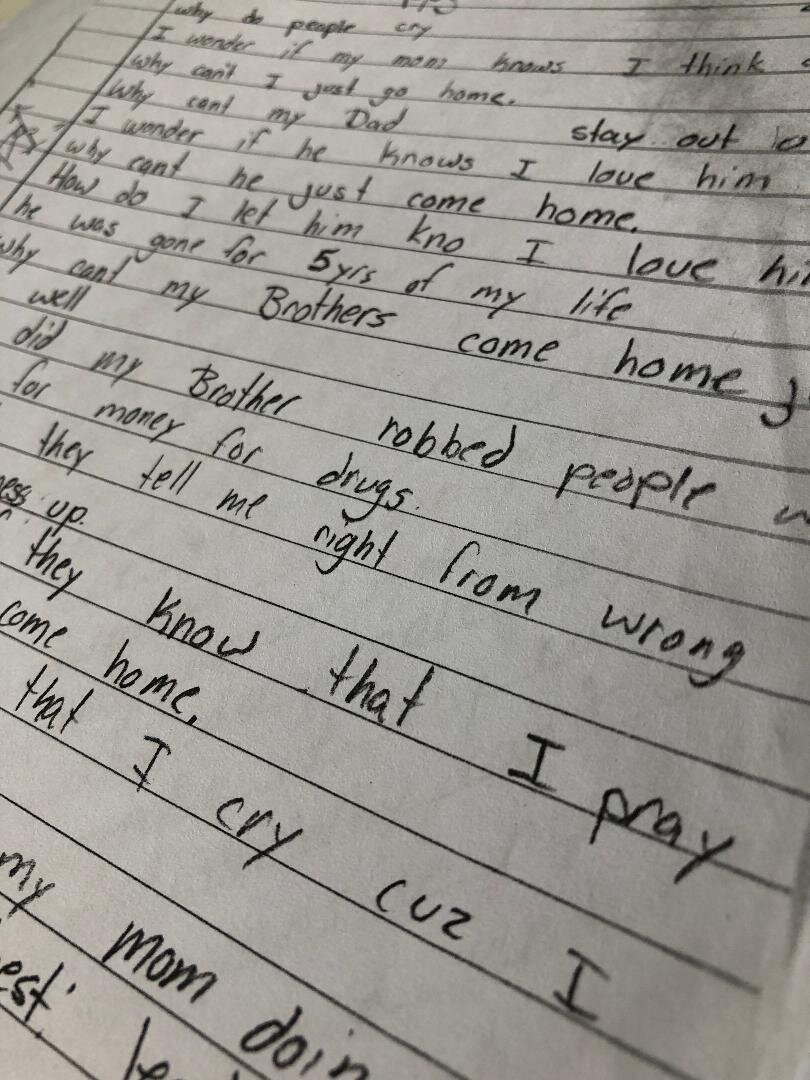 why do people cry
I wonder if my mom knows I think
why can't I just go home.
Why cant my Dad stay out
I wonder if he knows I love him
why cant he just come home.
How do I let him kno I love
he was gone for 5yrs of my life
why cant my Brothers come home
well
did my Brother robbed people
for money for drugs.
they tell me right from wrong
up.
they know that I pray
come home.
that I cry cuz I
my mom doin